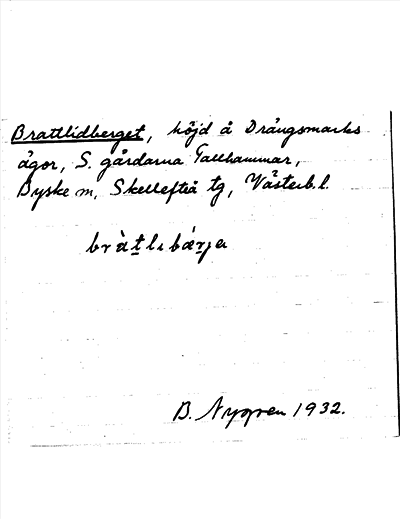 Brattlidberget, höjd å Drängsmarks
ägor, S. gårdarna Tallhammar,
Byske sn, Skellefteå tg, Västerb. l.
bràt̲lıbǽr̲ja
B. Nygren 1932.